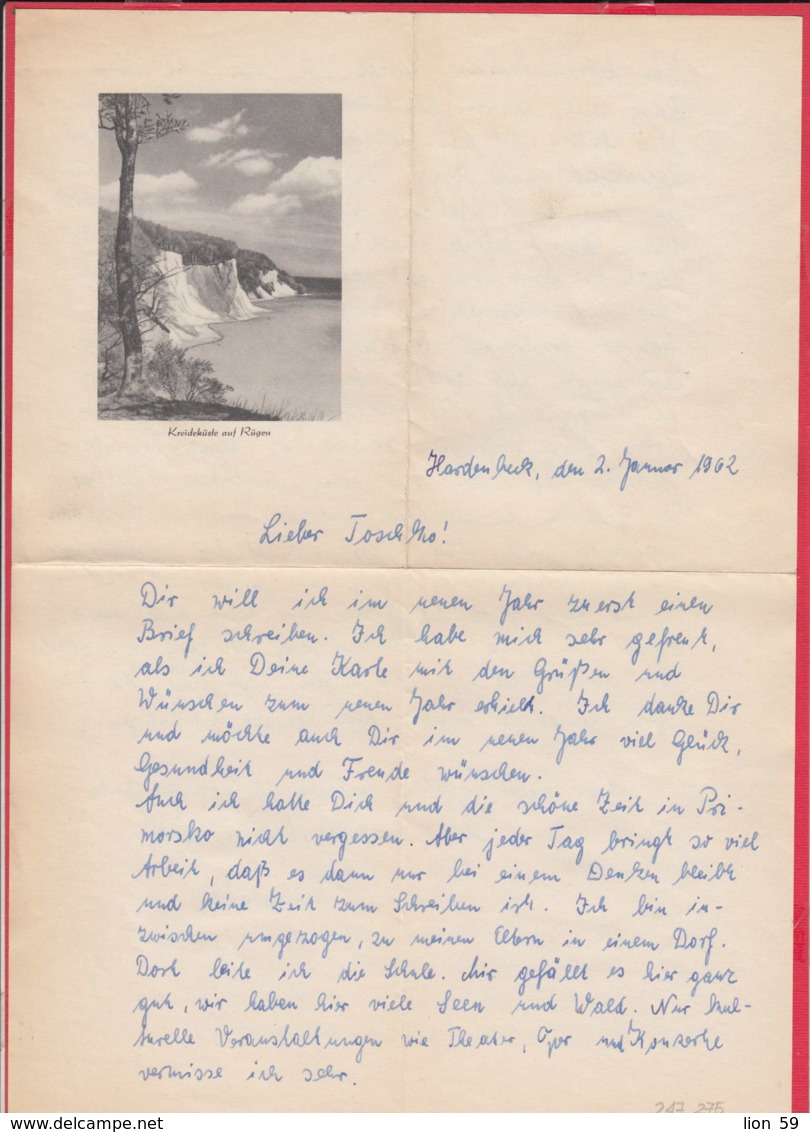 Kreideküste auf Rügen
Hardenbeck, den 2. Januar 1962
Lieber Toschko!
Dir will ich im neuen Jahr zuerst einen
Brief schreiben. Ich habe mich sehr gefreut,
als ich Deine Karte mit den Grüßen und
Wünschen zum neuen Jahr erhielt. Ich danke Dir
und möchte auch Dir im neuen Jahr viel Glück,
Gesundheit und Freude wünschen.
Auch ich hatte Dich und die schöne Zeit in Pri-
morsko nicht vergessen. Aber jeder Tag bringt so viel
Arbeit, daß es dann nur bei einem Denken bleibt
und keine Zeit zum Schreiben ist. Ich bin in-
zwischen umgezogen, zu meinen Eltern in einem Dorf.
Dort leite ich die Schule. Mir gefällt es hier ganz
gut, wir haben hier viele Seen und Wald. Nur kul-
turelle Veranstaltungen wie Theater, Oper und Konzerte
vermisse ich sehr.
247 275
lion 59